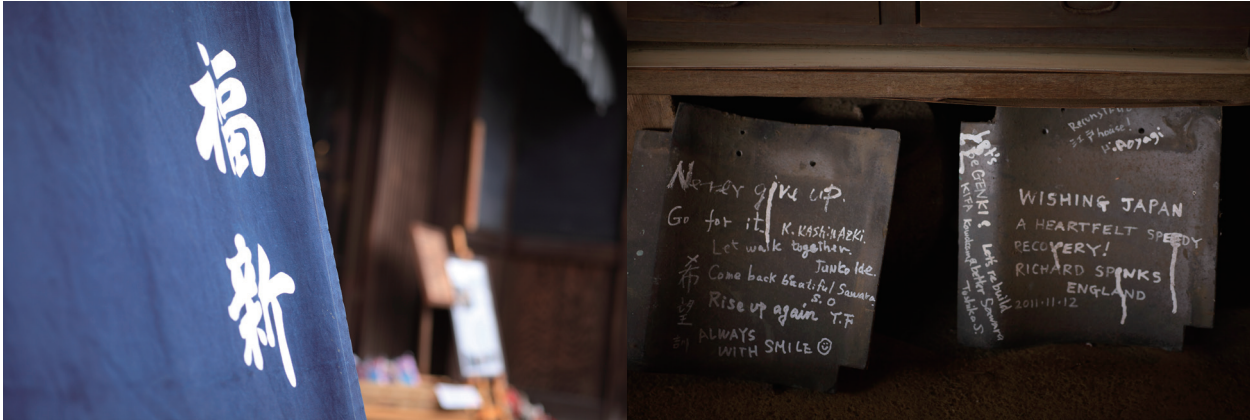 福新
Never give up.
Go for it!
K. KASHIWAZKI.
Let walk together.
Junko Ide.
希望
Come back beautiful Sawara.
S. O
Rise up again Y.F
ALWAYS
WITH SMILE
Let's be GENKI! Let's rebuild
KIFA a better Sawara
Toshiko S.
house!
Aoyagi
WISHING JAPAN
A HEARTFELT SPEEDY
RECOVERY!
RICHARD SPINKS
ENGLAND
2011.11.12